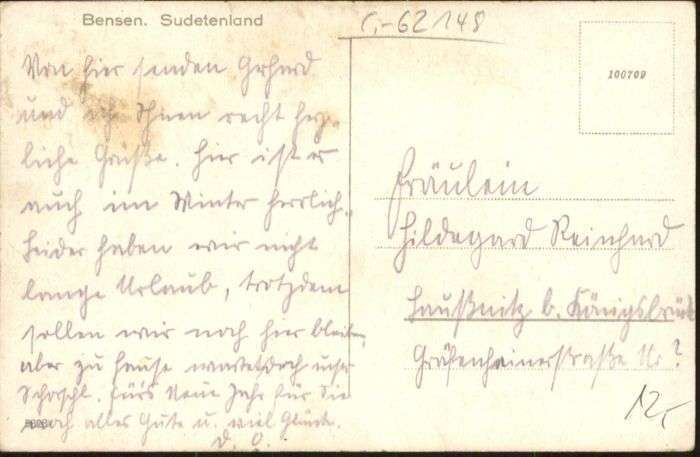 Bensen. Sudetenland
62148
Von hier senden Gerhard
und ich Ihnen recht herz-
liche Grüße. Hier ist es
auch im Winter herrlich.
Leider haben wir nicht
lange Urlaub, trotzdem
sollen wir noch hier bleiben,
aber zu Hause wartet doch unser
Schorschl. Fürs Neue Jahr für Sie
noch alles Gute u. viel Glück.
D. O.
100709
Fräulein
Hildegard Reinhard
Laußnitz b. Königsbrück
Gräfenhainerstraße Nr?
12,-